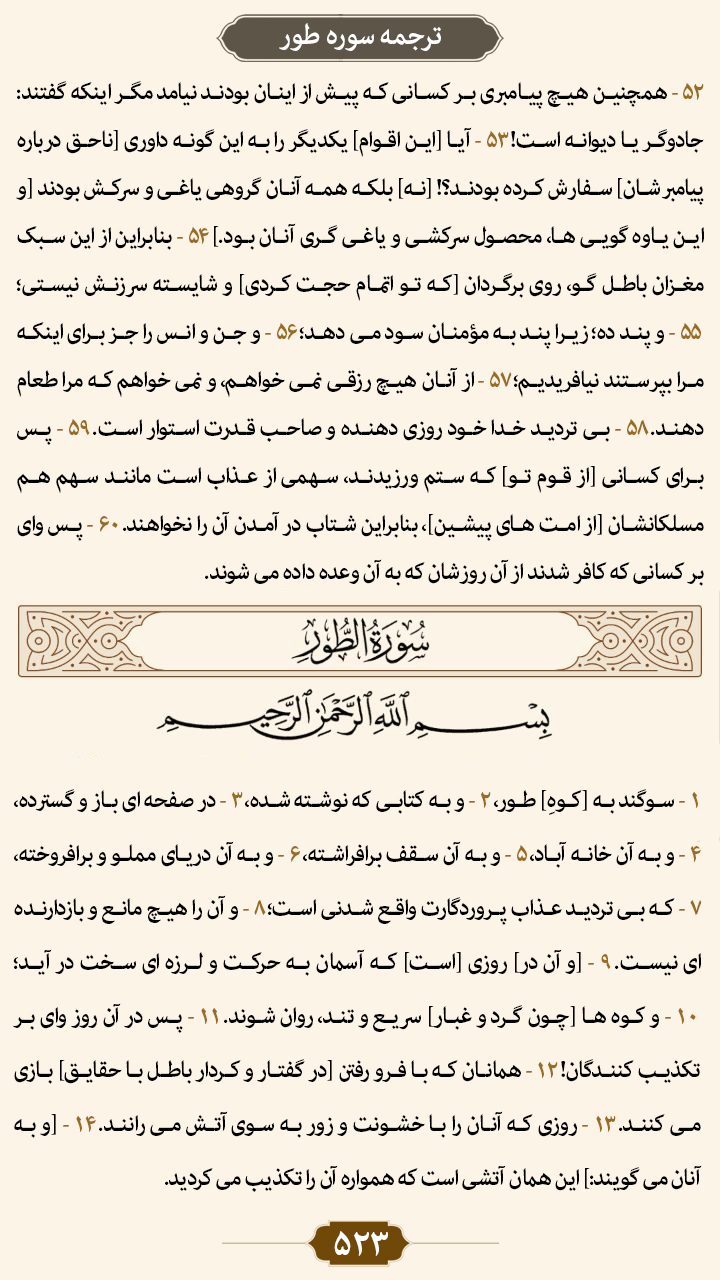 ترجمه سوره طور
۵۲ - همچنین هیچ پیامبری بر کسانی که پیش از اینان بودند نیامد مگر اینکه گفتند:
جادوگر یا دیوانه است! ۵۳ - آیا [این اقوام] یکدیگر را به این گونه داوری [ناحق درباره
پیامبرشان] سفارش کرده بودند؟! [نه] بلکه همه آنان گروهی یاغی و سرکش بودند [و
این یاوه گویی ها، محصول سرکشی و یاغی گری آنان بود.] ۵۴ - بنابراین از این سبک
مغزان باطل گو، روی برگردان [که تو اتمام حجت کردی] و شایسته سرزنش نیستی؛
۵۵ - و پند ده؛ زیرا پند به مؤمنان سود می دهد؛ ۵۶ - و جن و انس را جز برای اینکه
مرا بپرستند نیافریدیم؛ ۵۷ - از آنان هیچ رزقی نمی خواهم، و نمی خواهم که مرا طعام
دهند. ۵۸ - بی تردید خدا خود روزی دهنده و صاحب قدرت استوار است. ۵۹ - پس
برای کسانی [از قوم تو] که ستم ورزیدند، سهمی از عذاب است مانند سهم هم
مسلکانشان [از امت های پیشین]، بنابراین شتاب در آمدن آن را نخواهند. ۶۰ - پس وای
بر کسانی که کافر شدند از آن روزشان که به آن وعده داده می شوند.
سُورَةُ الطُّورِ
بِسْمِ اللَّهِ الرَّحْمَٰنِ الرَّحِيمِ
۱ - سوگند به [کوهِ] طور، ۲ - و به کتابی که نوشته شده، ۳ - در صفحه ای باز و گسترده،
۴ - و به آن خانه آباد، ۵ - و به آن سقف برافراشته، ۶ - و به آن دریای مملو و برافروخته،
۷ - که بی تردید عذاب پروردگارت واقع شدنی است؛ ۸ - و آن را هیچ مانع و بازدارنده
ای نیست. ۹ - [و آن در] روزی [است] که آسمان به حرکت و لرزه ای سخت در آید؛
۱۰ - و کوه ها [چون گرد و غبار] سریع و تند، روان شوند. ۱۱ - پس در آن روز وای بر
تکذیب کنندگان! ۱۲ - همانان که با فرو رفتن [در گفتار و کردار باطل با حقایق] بازی
می کنند. ۱۳ - روزی که آنان را با خشونت و زور به سوی آتش می رانند. ۱۴ - [و به
آنان می گویند:] این همان آتشی است که همواره آن را تکذیب می کردید.
۵۲۳